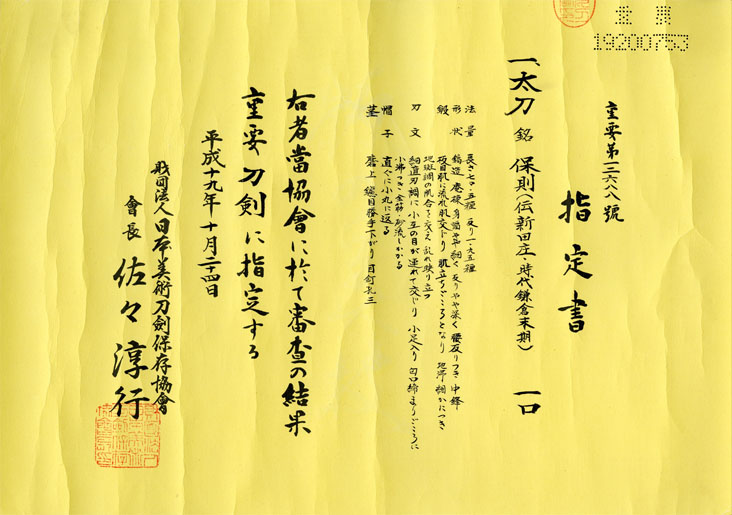 重要
19200753
重要第一三六八八號
指定書
一、太刀 銘 保則(伝新田庄・時代鎌倉末期) 一口
法量 長さ七〇・五糎 反り一・九五糎
形状 鎬造 庵棟 身幅やや細く 反りやや深く 腰反りつき 中鋒
鍛 板目肌に流れ肌交じり 肌立ちごころとなり 地沸細かにつき
地斑調の肌合を交え 乱れ映り立つ
刃文 細直刃調に 小互の目が連れて交じり 小足入り 匂口締まりごころに
小沸つき 金筋・砂流しかかる
帽子 直ぐに小丸に返る
茎 磨上 鑢目勝手下がり 目釘孔三
右者當協會に於て審査の結果
重要刀剣に指定する
平成十九年十月二十四日
財団法人日本美術刀剣保存協會
會長 佐々淳行